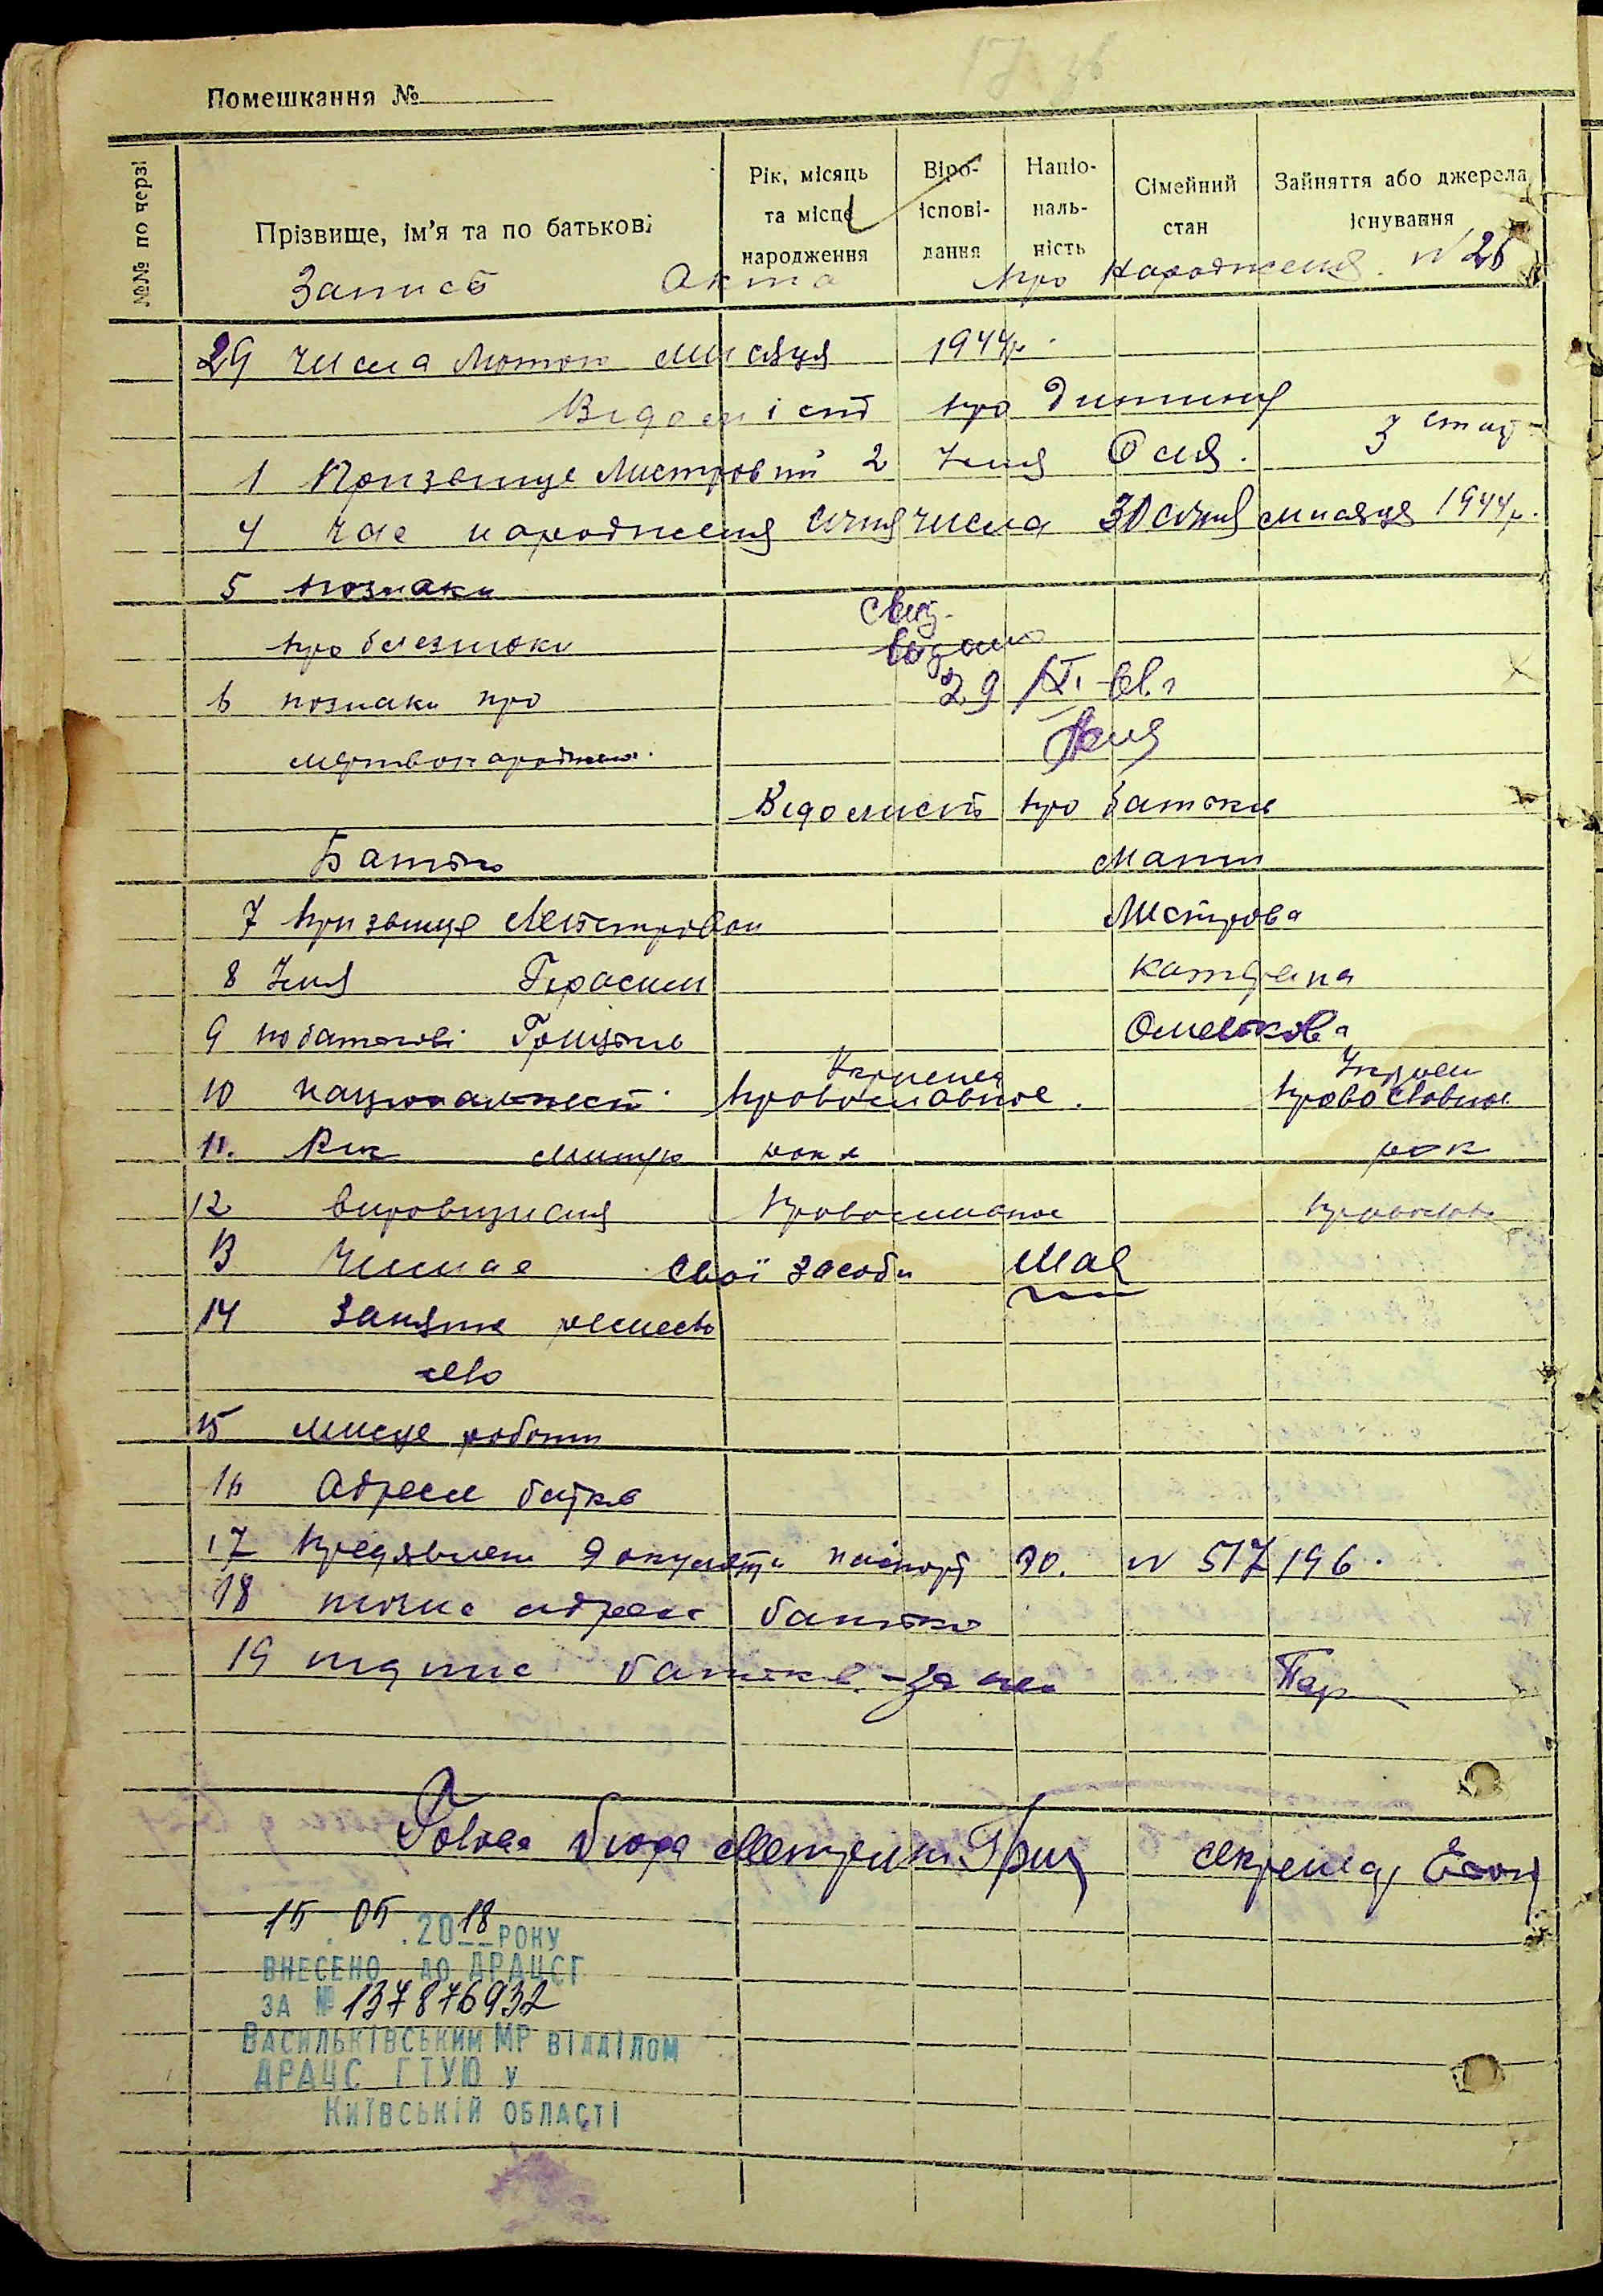 Помешкання №
№№ по черзі
Прізвище, ім'я та по батькові
Рік, місяць та місце народження
Віро-іспові-дання
Націо-наль-ність
Сімейний стан
Зайняття або джерела існування
Запись Акта про народження N 26
29 числа лютого мисяця 1944р.
Відомість про дитину
1 Призвище 2 Имя Оля. 3 стать
4 час народження числа 30 січня мисяця 1944р.
5 познаки
про близнюки
видано
29/XI-61.г
6 познаки про
мертвонароджен.
Відомисть про батьки
Батько Мати
7 призвище Мистрова
8 Имя Герасим Катерина
9 по батькові Грицько Омелькова
Украинец Украин
10 национальность православное. православное
11. Рик рокя рок
12 православное
13 Чи має свої засоби має
14 Заняття ремесво
15 мисце роботи
16 Адреса батькв
17 предявлен документи паспорт N 517196.
18 точна адреса батько
19 підпис батькв. - за неи
Голова бюро секретар
15.05.2018 РОКУ
ВНЕСЕНО ДО ДРАЦСГ
ЗА № 137876932
ВАСИЛЬКІВСЬКИМ МР ВІДДІЛОМ
ДРАЦС ГТУЮ У
КИЇВСЬКІЙ ОБЛАСТІ